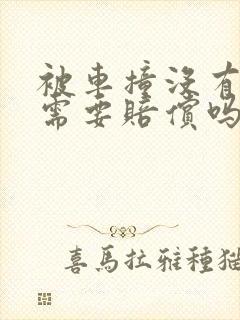 被車撞沒有
需要賠償嗎
喜馬拉雅種猫